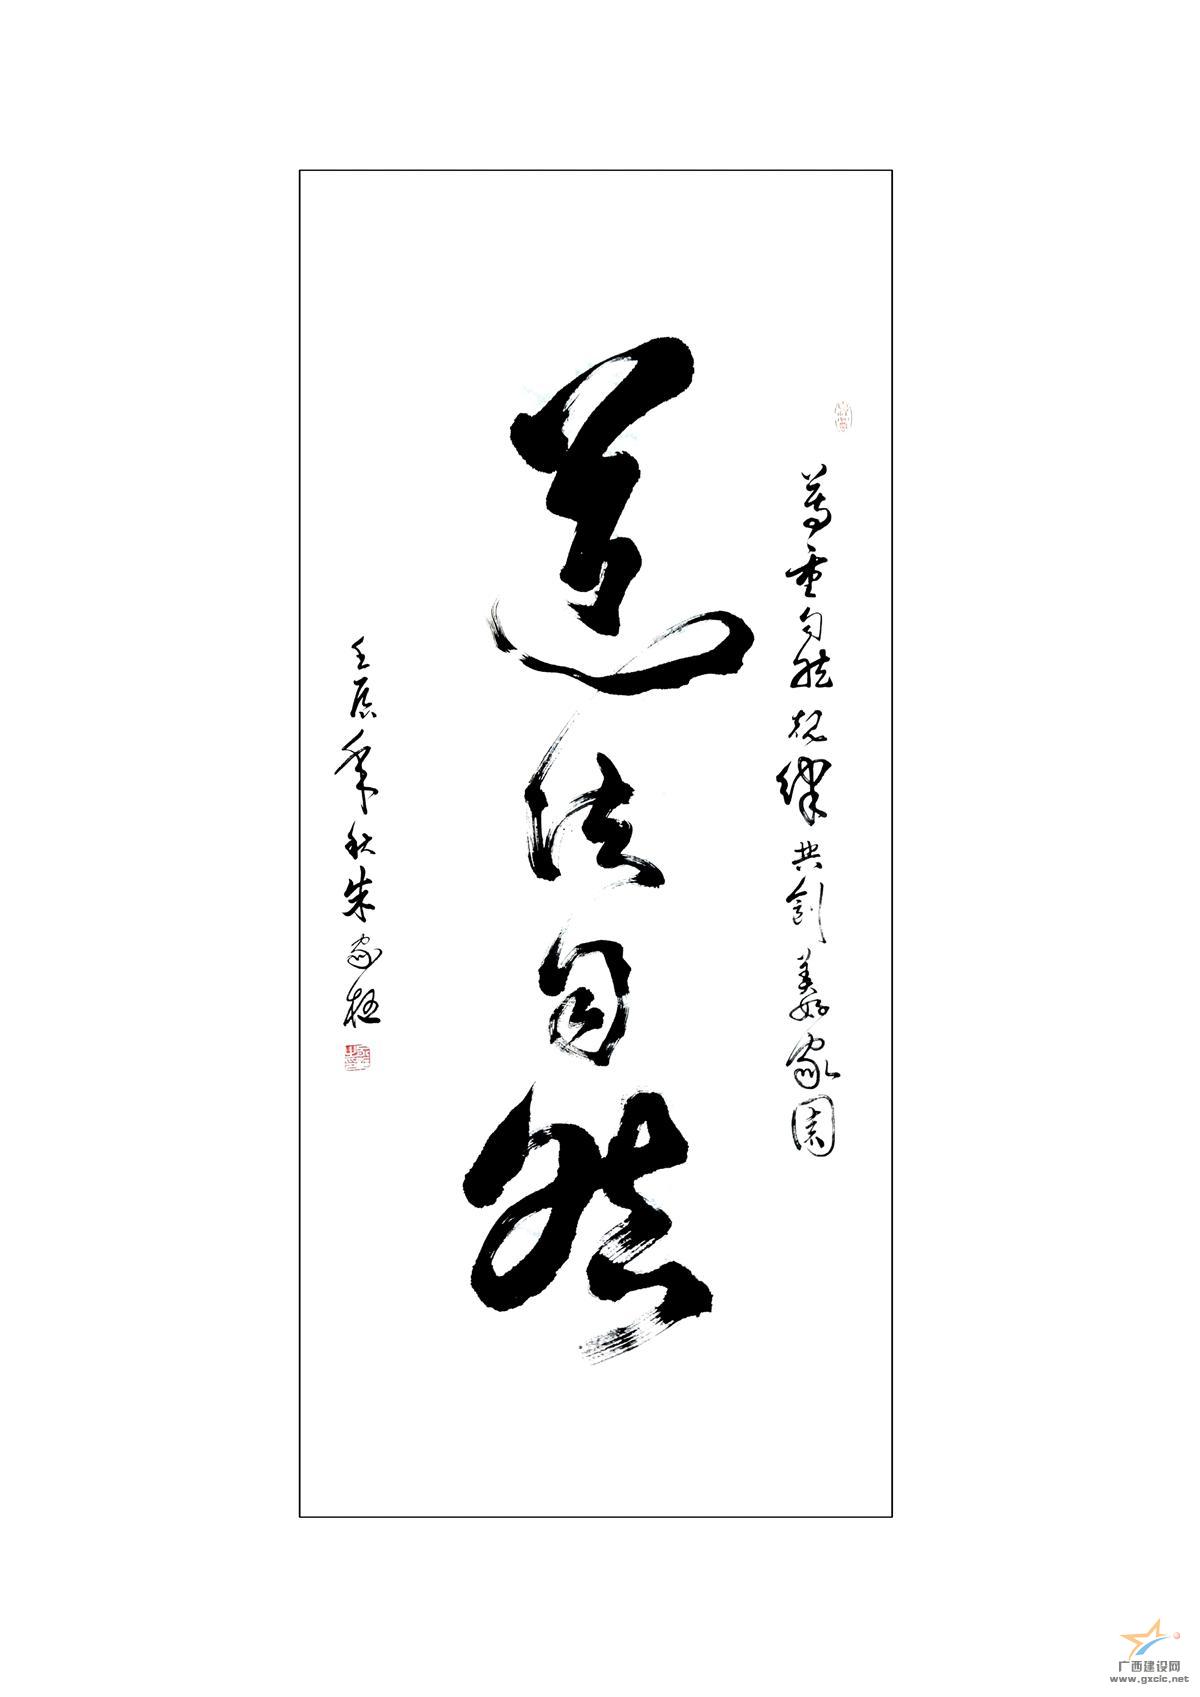 尊重自然规律共创美好家园
道法自然
壬辰年秋朱家桂
广西建设网
www.gxcic.net